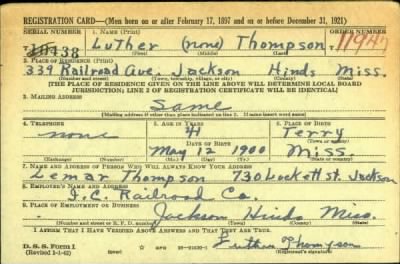 REGISTRATION CARD—(Men born on or after February 17, 1897 and on or before December 31, 1921)
SERIAL NUMBER 1. NAME (Print) ORDER NUMBER
T 10438 Luther (none) Thompson 11947
(First) (Middle) (Last)
2. PLACE OF RESIDENCE (Print)
339 Railroad Ave. Jackson Hinds Miss.
(Number and street) (Town, township, village, or city) (County) (State)
[THE PLACE OF RESIDENCE GIVEN ON THE LINE ABOVE WILL DETERMINE LOCAL BOARD
JURISDICTION; LINE 2 OF REGISTRATION CERTIFICATE WILL BE IDENTICAL]
3. MAILING ADDRESS
Same
[Mailing address if other than place indicated on line 2. If same insert word same]
4. TELEPHONE 5. AGE IN YEARS 6. PLACE OF BIRTH
none 41 Terry
DATE OF BIRTH (Town or county)
May 12 1900 Miss.
(Exchange) (Number) (Mo.) (Day) (Yr.) (State or country)
7. NAME AND ADDRESS OF PERSON WHO WILL ALWAYS KNOW YOUR ADDRESS
Lemar Thompson 730 Lockett St. Jackson
8. EMPLOYER'S NAME AND ADDRESS
I.C. Railroad Co.
9. PLACE OF EMPLOYMENT OR BUSINESS
Jackson Hinds Miss.
(Number and street or R. F. D. number) (Town) (County) (State)
I AFFIRM THAT I HAVE VERIFIED ABOVE ANSWERS AND THAT THEY ARE TRUE.
D. S. S. Form 1
(Revised 1-1-42) GPO 16-21630-1 Luther Thompson
(Registrant's signature)